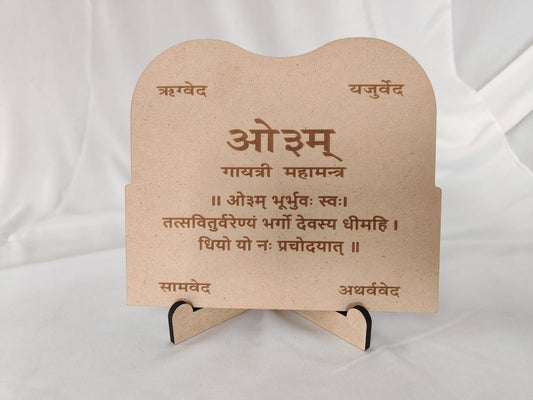 ऋग्वेद यजुर्वेद
ओ३म्
गायत्री महामन्त्र
॥ ओ३म् भूर्भुवः स्वः।
तत्सवितुर्वरेण्यं भर्गो देवस्य धीमहि ।
धियो यो नः प्रचोदयात् ॥
सामवेद अथर्ववेद